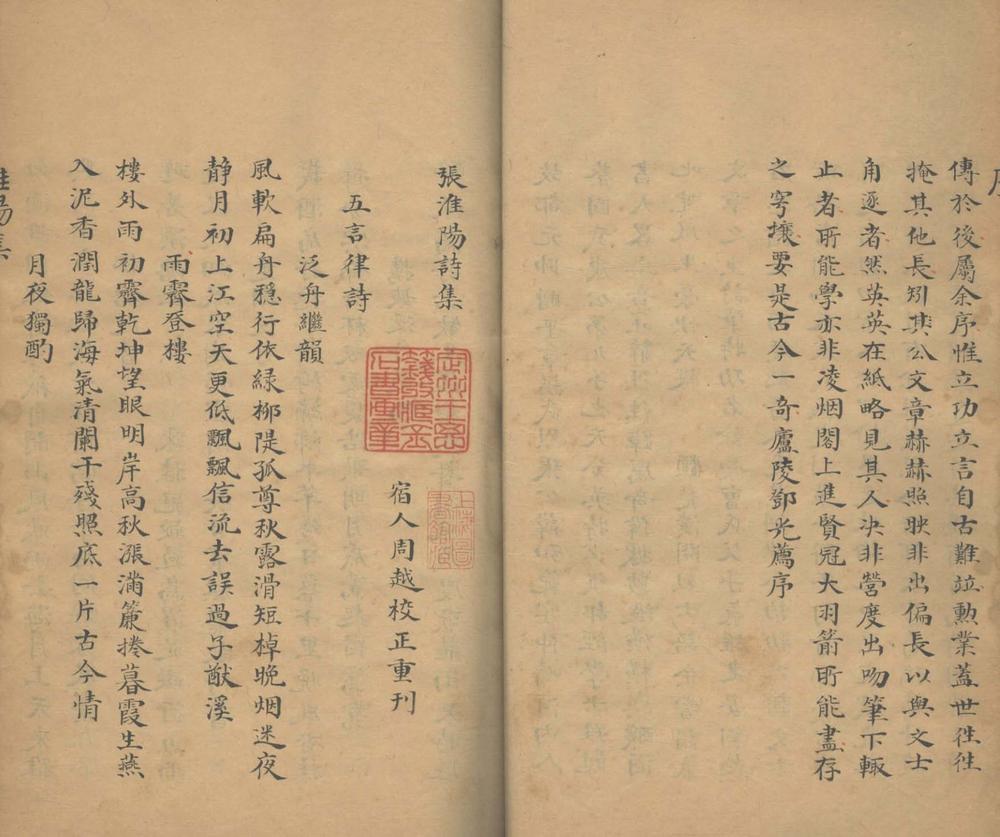 傳於後屬余序惟立功立言自古難竝勲業蓋世徃徃
掩其他長矧其公文章赫赫照映非出偏長以與文士
角逐者然英英在紙略見其人决非營度出吻筆下輙
止者所能學亦非凌烟閣上進賢冠大羽箭所能盡存
之穹壤要是古今一奇廬陵鄧光薦序
張淮陽詩集
宿人周越校正重刊
五言律詩
泛舟繼韻
風軟扁舟穩行依緑柳隄孤尊秋露滑短棹晚烟迷夜
静月初上江空天更低飄飄信流去誤過子猷溪
雨霽登樓
樓外雨初霽乾坤望眼明岸高秋漲滿簾捲暮霞生燕
入泥香潤龍歸海氣清闌干殘照底一片古今情
月夜獨酌